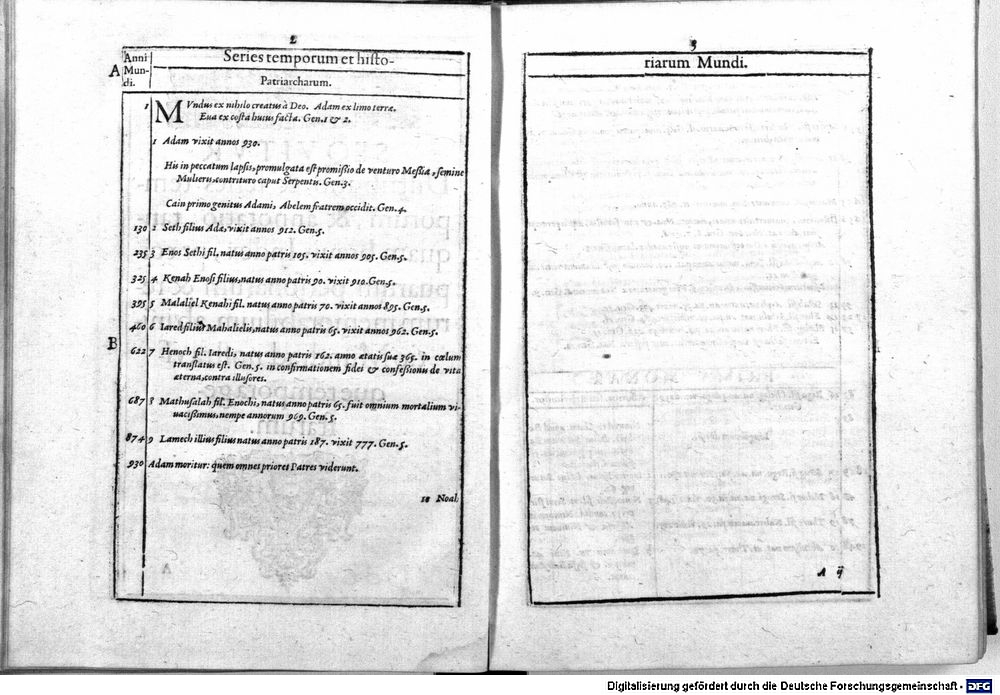 2
Anni
Mun-
di.
A
Series temporum et histo-
Patriarcharum.
1 MVndus ex nihilo creatus à Deo. Adam ex limo terræ.
Eua ex costa huius facta. Gen.1 & 2.
1 Adam vixit annos 930.
His in peccatum lapsis, promulgata est promissio de venturo Messia, semine
Mulieris, contrituro caput Serpentis. Gen.3.
Cain primogenitus Adami, Abelem fratrem occidit. Gen.4.
130 2 Seth filius Adæ, vixit annos 912. Gen.5.
235 3 Enos Sethi fil. natus anno patris 105. vixit annos 905. Gen.5.
325 4 Kenah Enosi filius, natus anno patris 90. vixit 910. Gen.5.
395 5 Malaliel Kenahi fil. natus anno patris 70. vixit annos 895. Gen.5.
460 6 Iared filius Mahalielis, natus anno patris 65. vixit annos 962. Gen.5.
B
622 7 Henoch fil. Iaredi, natus anno patris 162. anno ætatis suæ 365. in cœlum
translatus est. Gen.5. in confirmationem fidei & confessionis de vita
æterna, contra illusores.
687 8 Mathusalah fil. Enochi, natus anno patris 65. fuit omnium mortalium vi-
uacissimus, nempe annorum 969. Gen.5.
874 9 Lamech illius filius natus anno patris 187. vixit 777. Gen.5.
930 Adam moritur: quem omnes priores Patres viderunt.
10 Noah
3
riarum Mundi.
A ij
Digitalisierung gefördert durch die Deutsche Forschungsgemeinschaft - DFG